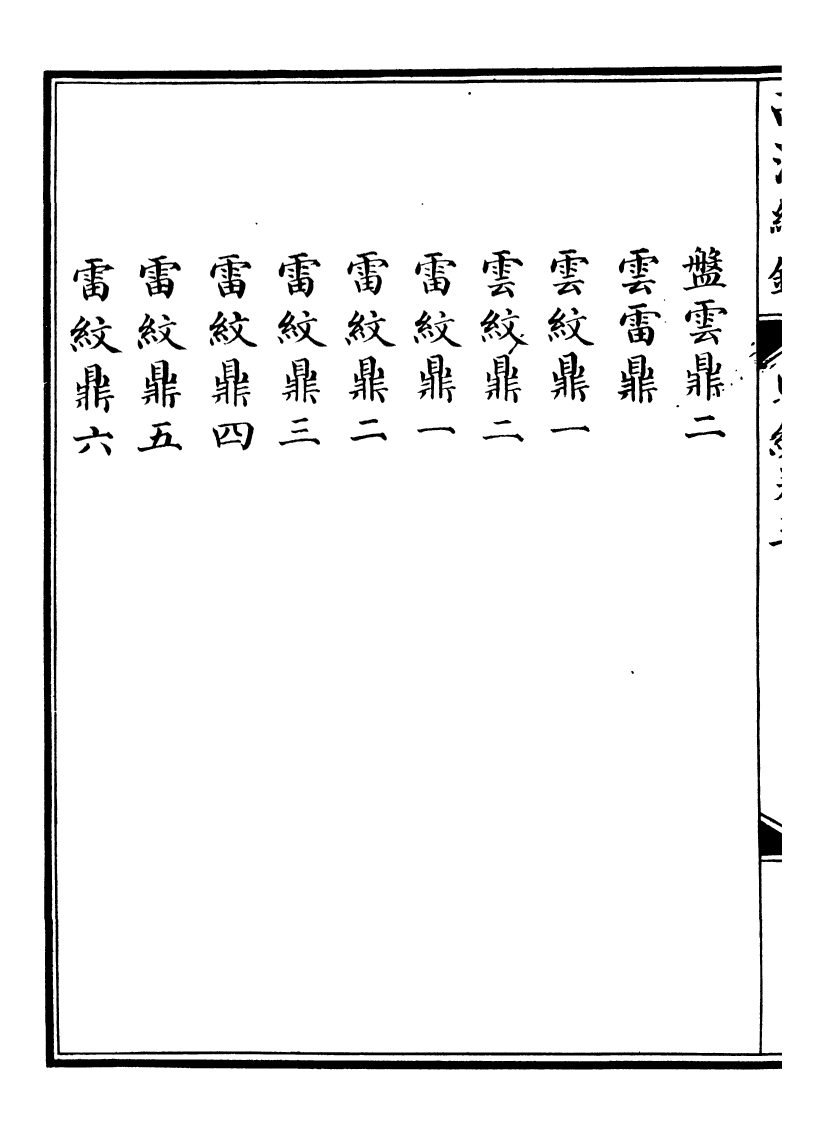 盤雲鼎二
雲雷鼎
雲紋鼎一
雲紋鼎二
雷紋鼎一
雷紋鼎二
雷紋鼎三
雷紋鼎四
雷紋鼎五
雷紋鼎六